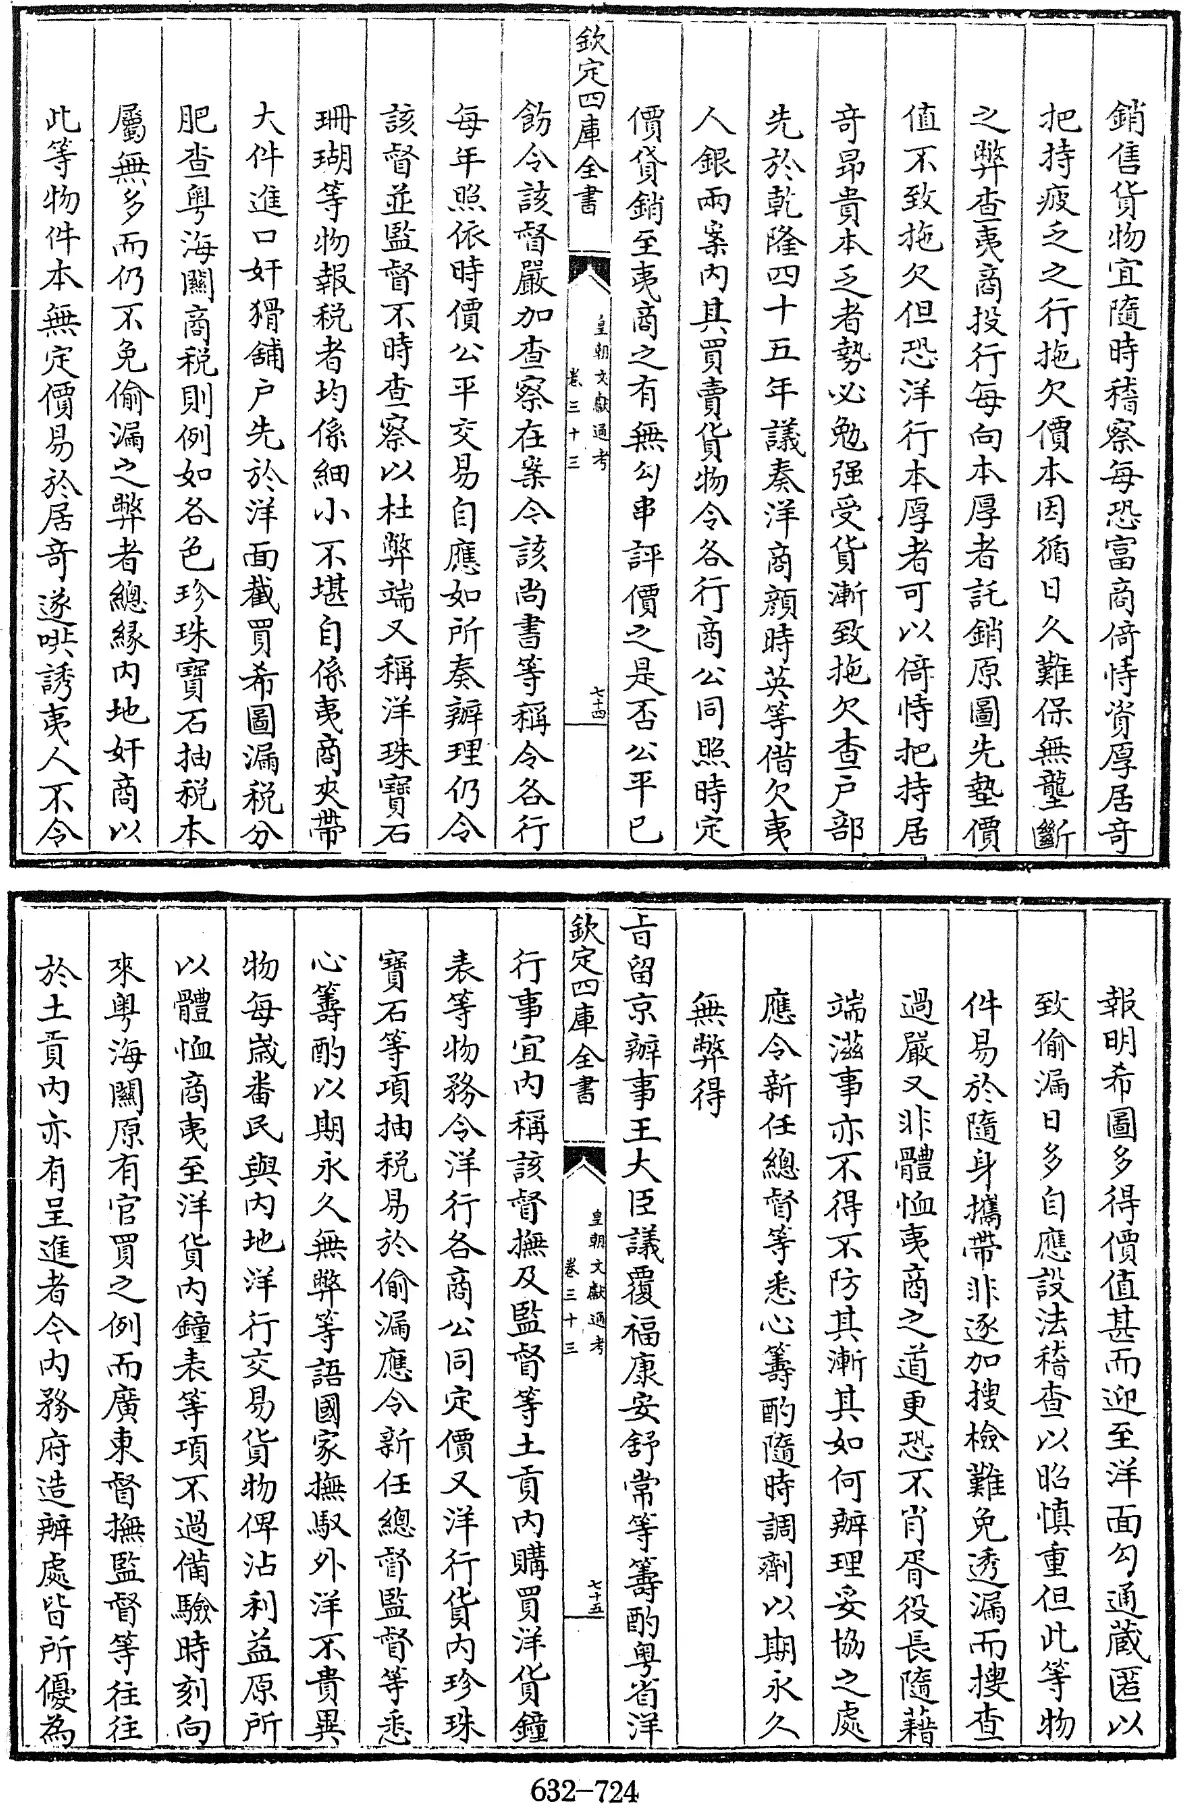 銷售貨物宜隨時稽察每恐富商倚恃資厚居竒
把持疲乏之行拖欠價本因循日久難保無壟斷
之弊查夷商投行每向本厚者託銷原圖先墊價
值不致拖欠但恐洋行本厚者可以倚恃把持居
竒昂貴本乏者勢必勉强受貨漸致拖欠查户部
先於乾隆四十五年議奏洋商顔時英等借欠夷
人銀兩案内其買賣貨物令各行商公同照時定
價貸銷至夷商之有無勾串評價之是否公平已
欽定四庫全書
皇朝文獻通考
卷三十三
七十四
飭令該督嚴加查察在案今該尚書等稱令各行
每年照依時價公平交易自應如所奏辦理仍令
該督並監督不時查察以杜弊端又稱洋珠寶石
珊瑚等物報税者均係細小不堪自係夷商夾帶
大件進口奸猾舖户先於洋面截買希圖漏税分
肥查粤海關商税則例如各色珍珠寶石抽税本
屬無多而仍不免偷漏之弊者總緣内地奸商以
此等物件本無定價易於居竒遂哄誘夷人不令
報明希圖多得價值甚而迎至洋面勾通藏匿以
致偷漏日多自應設法稽查以昭慎重但此等物
件易於隨身攜帶非逐加搜檢難免透漏而搜查
過嚴又非體恤夷商之道更恐不肖胥役長隨藉
端滋事亦不得不防其漸其如何辦理妥協之處
應令新任總督等悉心籌酌隨時調劑以期永久
無弊得
㫖留京辦事王大臣議覆福康安舒常等籌酌粤省洋
欽定四庫全書
皇朝文獻通考
卷三十三
七十五
行事宜内稱該督撫及監督等土貢内購買洋貨鐘
表等物務令洋行各商公同定價又洋行貨内珍珠
寶石等項抽税易於偷漏應令新任總督監督等悉
心籌酌以期永久無弊等語國家撫馭外洋不貴異
物每嵗番民與内地洋行交易貨物俾沾利益原所
以體恤商夷至洋貨内鐘表等項不過備驗時刻向
來粤海關原有官買之例而廣東督撫監督等往往
於土貢内亦有呈進者令内務府造辦處皆所優為
632-724